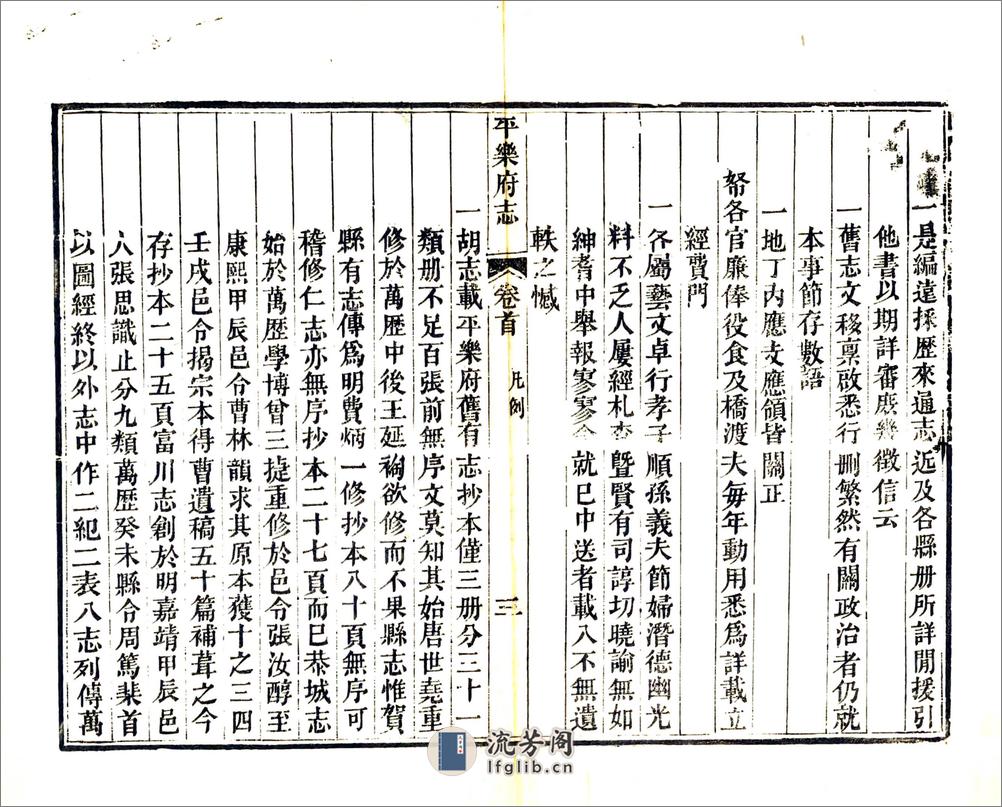 一是編遠採歷來通志近及各縣册所詳閒援引
他書以期詳審庶幾徵信云
一舊志文移禀啟悉行刪繁然有關政治者仍就
本事節存數語
一地丁內應支應領皆關正
帑各官廉俸役食及橋渡夫每年動用悉爲詳載立
經費門
一各屬藝文卓行孝子順孫義夫節婦潛德幽光
料不乏人屢經札查暨賢有司諄切曉諭無如
紳耆中舉報寥寥今就巳中送者載入不無遺
軼之憾
平樂府志
卷首
凡例
三
一胡志載平樂府舊有志抄本僅三册分三十一
類册不足百張前無序文莫知其始唐世堯重
修於萬歷中後王延禂欲修而不果縣志惟賀
縣有志傳爲明費炳一修抄本八十頁無序可
稽修仁志亦無序抄本二十七頁而巳恭城志
始於萬歷學博曾三捷重修於邑令張汝醇至
康熙甲辰邑令曹林韻求其原本獲十之三四
壬戌邑令揭宗本得曹遺稿五十篇補葺之今
存抄本二十五頁富川志創於明嘉靖甲辰邑
人張思識止分九類萬歷癸未縣令周篤棐首
以圖經終以外志中作二紀二表八志列傳萬
流芳阁
lfglib.cn